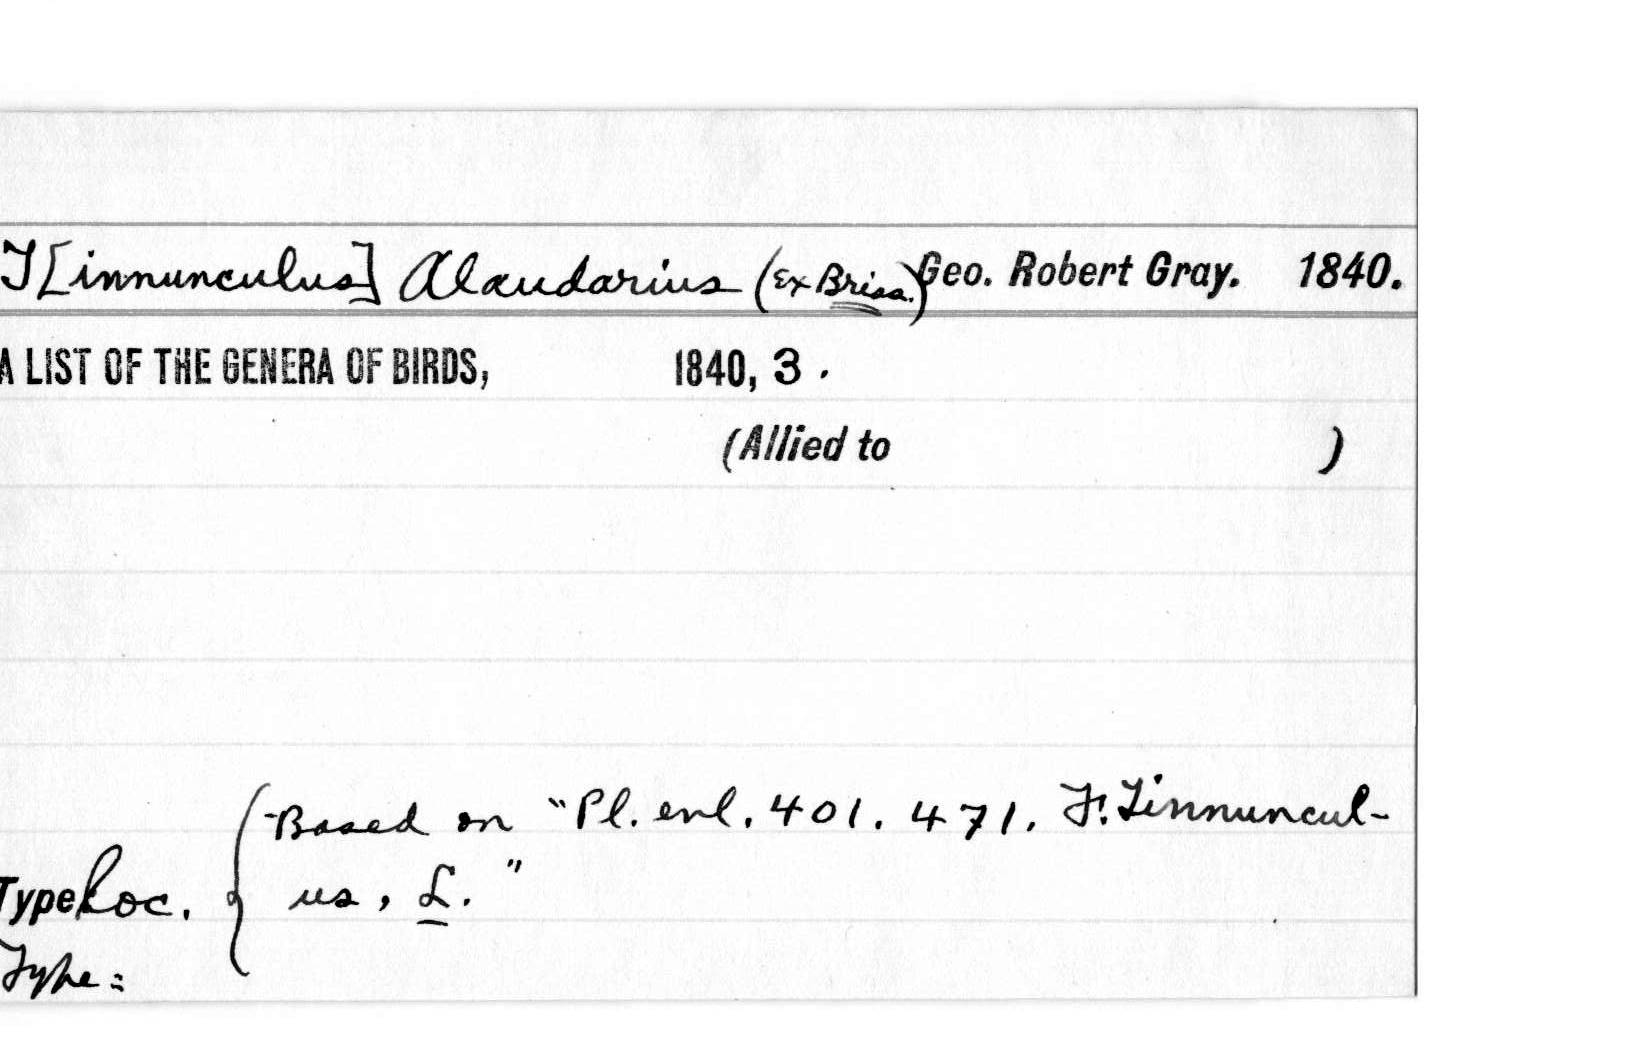 T[innunculus] Alaudarius (Ex Briss.) Geo. Robert Gray. 1840.
A LIST OF THE GENERA OF BIRDS, 1840, 3.
(Allied to )
Based on "Pl. enl. 401. 471. F. Tinnuncul-
Type loc. us, L."
Type: